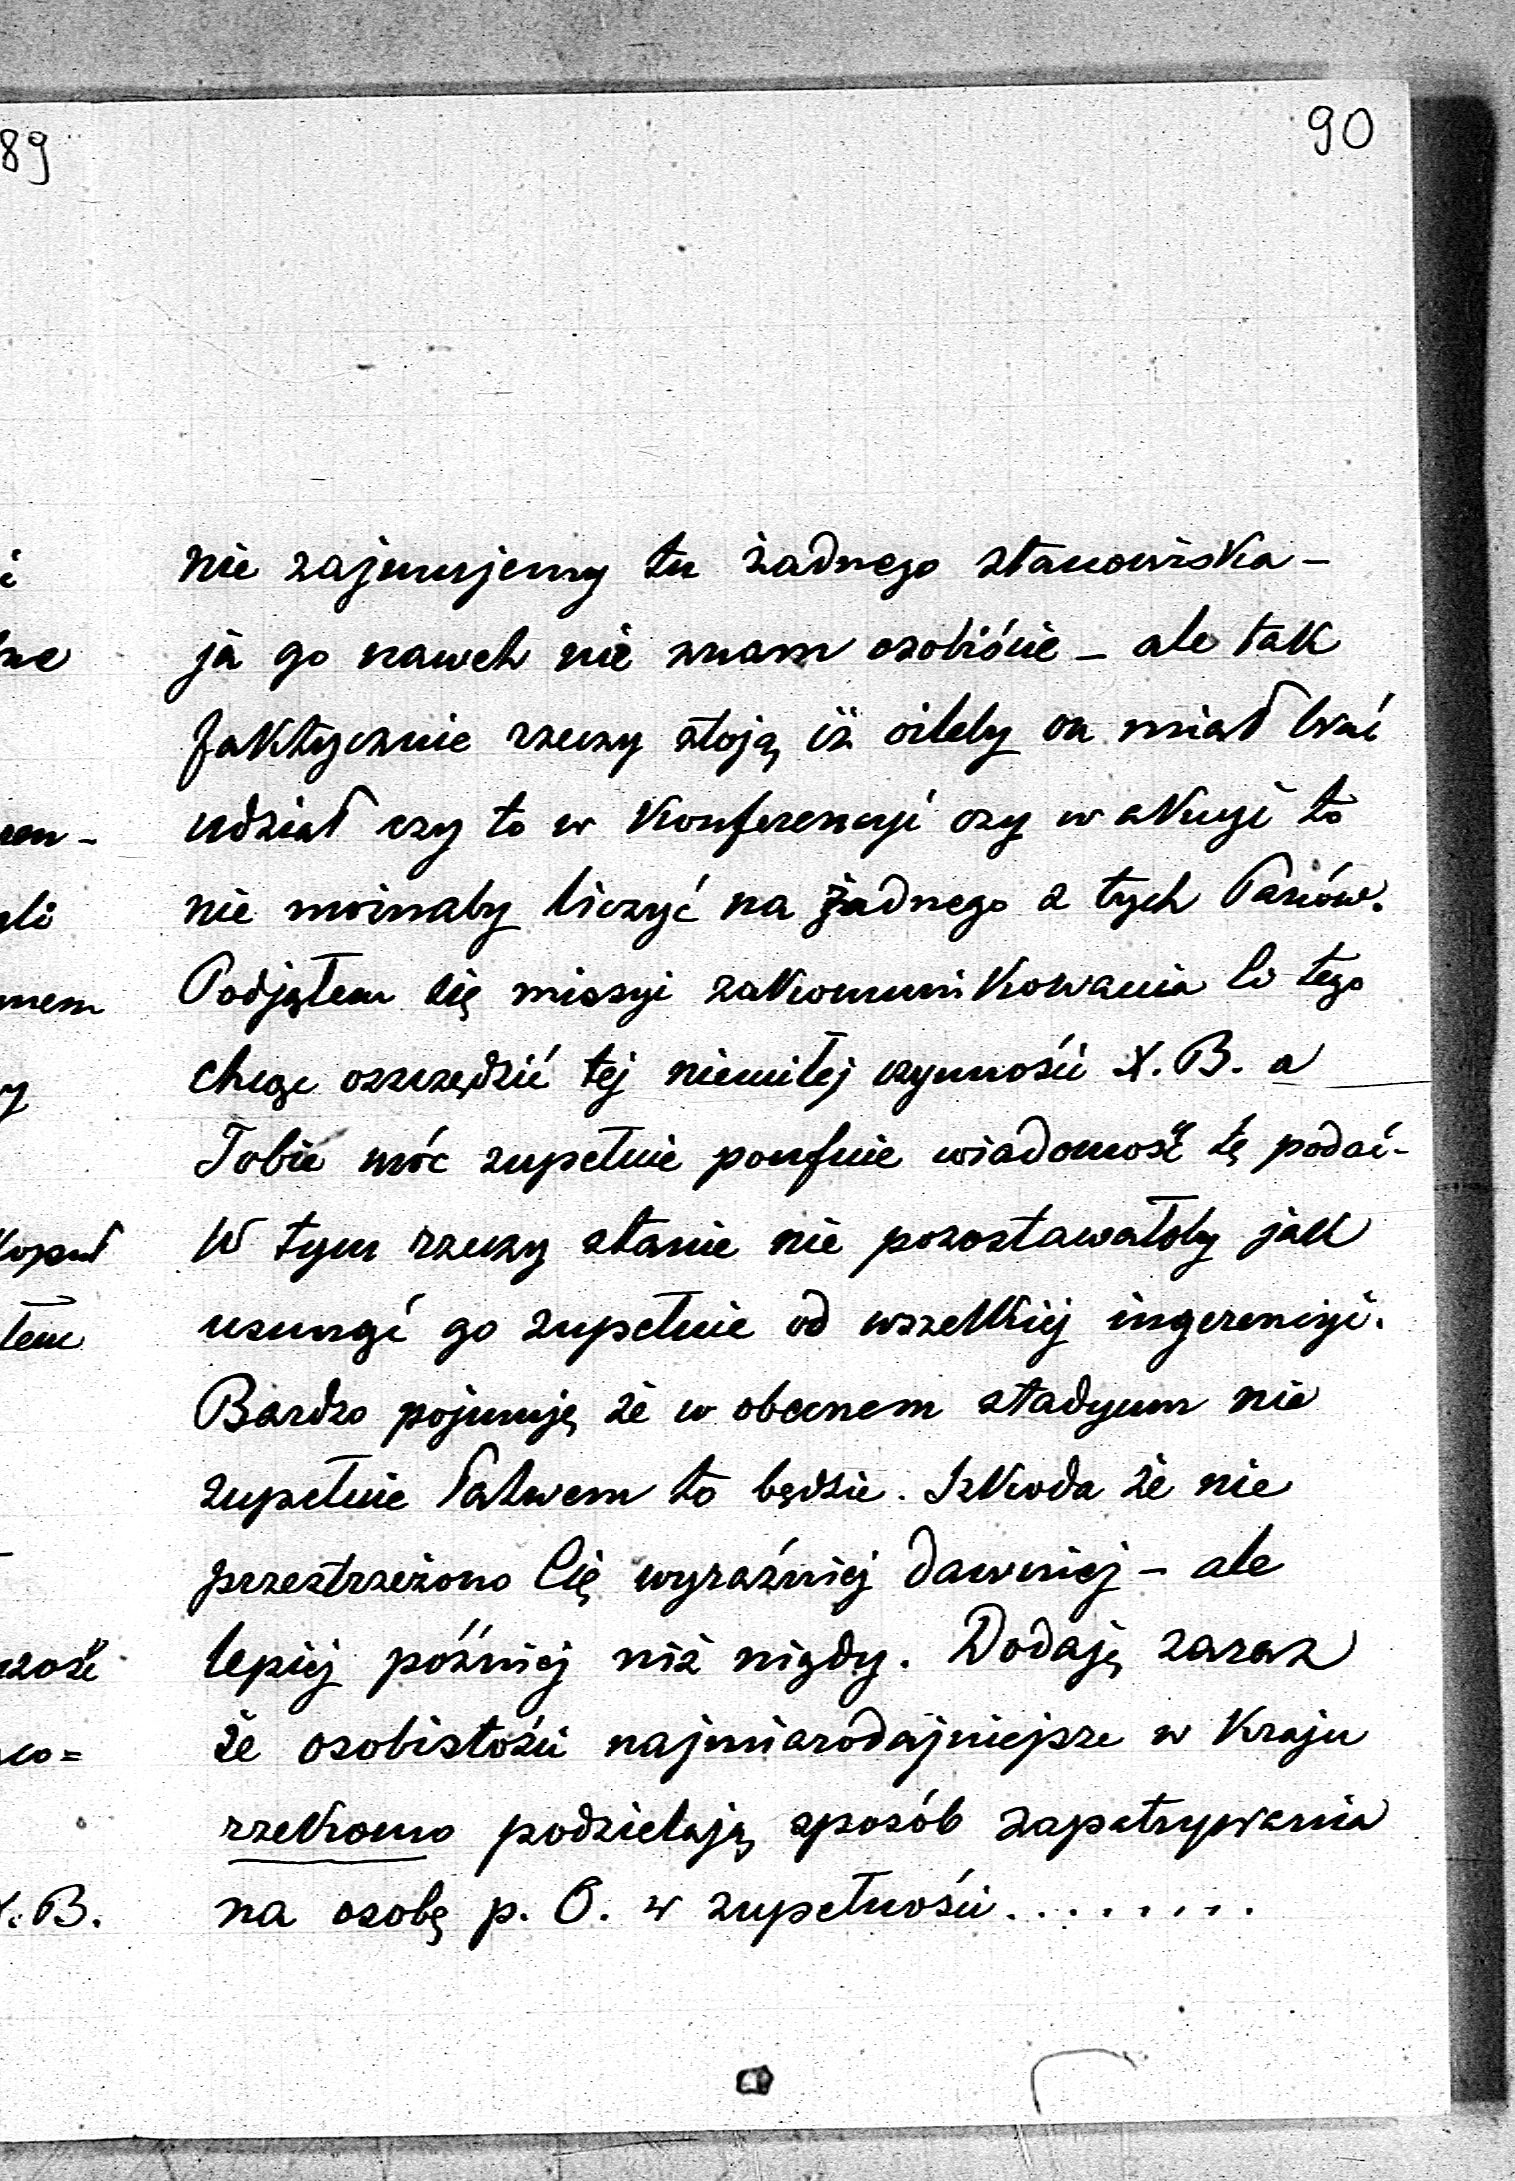 89
90
nie zajmujemy tu żadnego stanowiska –
ja go nawet nie znam osobiście – ale tak
faktycznie rzeczy stoją iż oileby on miał brać
udział czy to w Konferencyi czy w akcyi to
nie możnaby liczyć na żadnego z tych Panów.
Podjąłem się missyi zakomunikowania Ci tego
chcąc oszczędzić tej niemiłej czynności X. B. a
Tobie móc zupełnie poufnie wiadomość tę podać –
W tym rzeczy stanie nie pozostawałoby jak
usunąć go zupełnie od wszelkiej ingerencyi.
Bardzo pojmuję że w obecnem stadyum nie
zupełnie łatwem to będzie. Szkoda że nie
przestrzeżono Cię wyraźniej dawniej – ale
lepiej później niż nigdy. Dodaję zaraz
że osobistości najmiarodajniejsze w Kraju
rzekomo podzielają sposób zapatrywania
na osobę p. O. w zupełności . . . . . . . .